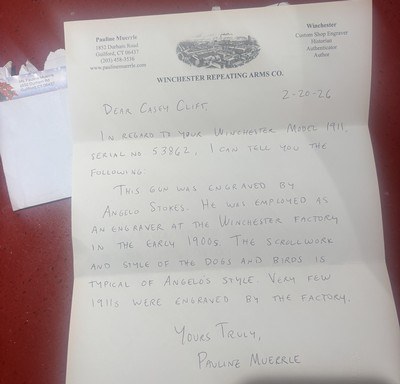 Pauline Muerrle
Guilford, CT 06437
Winchester
Custom Shop Engraver
Historian
Authenticator
Author
WINCHESTER REPEATING ARMS CO.
2-20-26
DEAR CASEY CLIFT,
IN REGARD TO YOUR WINCHESTER MODEL 1911,
SERIAL NO 53862, I CAN TELL YOU THE
FOLLOWING:
THIS GUN WAS ENGRAVED BY
ANGELO STOKES. HE WAS EMPLOYED AS
AN ENGRAVER AT THE WINCHESTER FACTORY
IN THE EARLY 1900S. THE SCROLLWORK
AND STYLE OF THE DOGS AND BIRDS IS
TYPICAL OF ANGELOS STYLE. VERY FEW
1911S WERE ENGRAVED BY THE FACTORY.
YOURS TRULY,
PAULINE MUERRLE